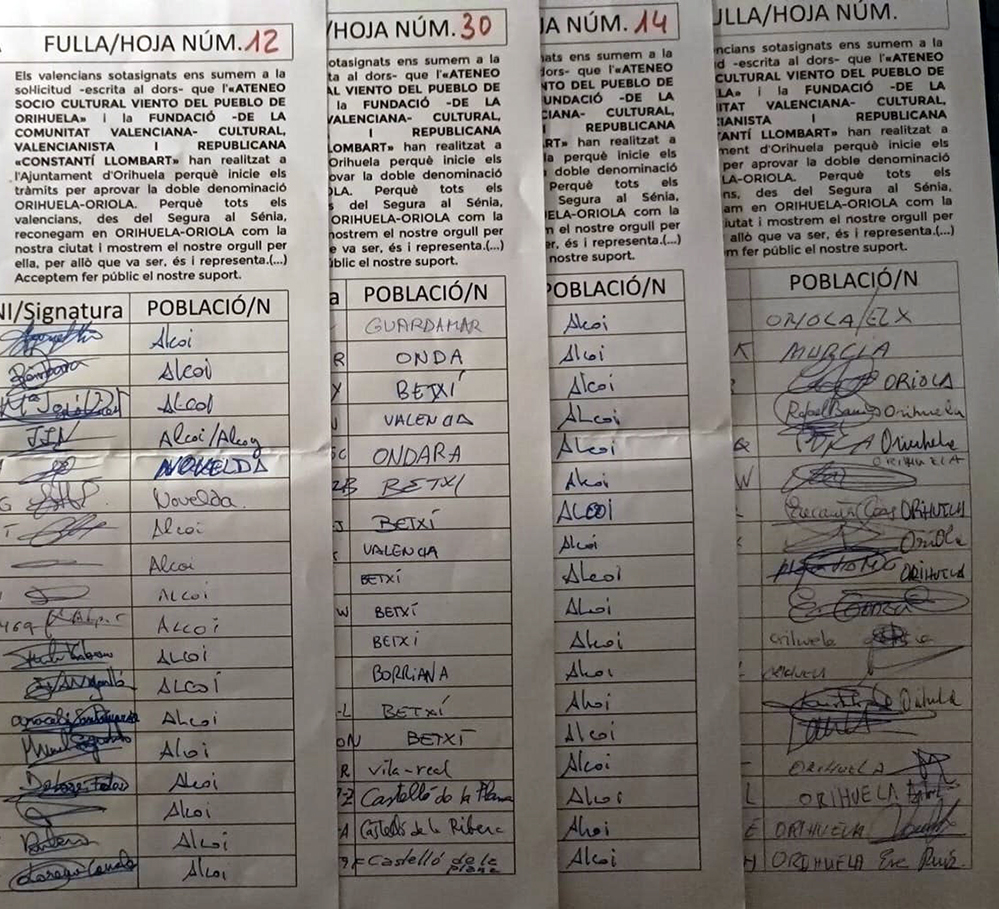 FULLA/HOJA NÚM. 12
Els valencians sotasignats ens sumem a la
sol·licitud -escrita al dors- que l'«ATENEO
SOCIO CULTURAL VIENTO DEL PUEBLO DE
ORIHUELA» i la FUNDACIÓ -DE LA
COMUNITAT VALENCIANA- CULTURAL,
VALENCIANISTA I REPUBLICANA
«CONSTANTÍ LLOMBART» han realitzat a
l'Ajuntament d'Orihuela perquè inicie els
tràmits per aprovar la doble denominació
ORIHUELA-ORIOLA. Perquè tots els
valencians, des del Segura al Sénia,
reconegam en ORIHUELA-ORIOLA com la
nostra ciutat i mostrem el nostre orgull per
ella, per allò que va ser, és i representa.(...)
Acceptem fer públic el nostre suport.
NI/Signatura POBLACIÓ/N
Alcoi
Alcoi
Alcoi
Alcoi/Alcoy
NOVELDA
Novelda.
Alcoi
Alcoi
Alcoi
ALCOI
ALCOI
ALCOÍ
Alcoi
Alcoi
Alcoi
Alcoi
Alcoi
Alcoi
/HOJA NÚM. 30
otasignats ens sumem a la
ta al dors- que l'«ATENEO
AL VIENTO DEL PUEBLO DE
la FUNDACIÓ -DE LA
VALENCIANA- CULTURAL,
I REPUBLICANA
LOMBART» han realitzat a
Orihuela perquè inicie els
ovar la doble denominació
OLA. Perquè tots els
s del Segura al Sénia,
ORIHUELA-ORIOLA com la
nostrem el nostre orgull per
e va ser, és i representa.(...)
úblic el nostre suport.
a POBLACIÓ/N
GUARDAMAR
R ONDA
Y BETXÍ
VALENCIA
ONDARA
BETXÍ
BETXÍ
VALENCIA
BETXÍ
W BETXÍ
BETXÍ
BORRIANA
-L BETXÍ
ON BETXÍ
R Vila-real
-Z Castelló de la Plana
-A Castelló de la Ribera
Castelló de la plana
JA NÚM. 14
nats ens sumem a la
dors- que l'«ATENEO
NTO DEL PUEBLO DE
UNDACIÓ -DE LA
CIANA- CULTURAL,
I REPUBLICANA
RT» han realitzat a
la perquè inicie els
a doble denominació
Perquè tots els
Segura al Sénia,
ELA-ORIOLA com la
m el nostre orgull per
er, és i representa.(...)
nostre suport.
POBLACIÓ/N
Alcoi
Alcoi
Alcoi
ALcoi
Alcoi
Alcoi
ALCOI
Alcoi
Alcoi
Alcoi
Alcoi
Alcoi
Alcoi
Alcoi
Alcoi
Alcoi
Alcoi
Alcoi
ULLA/HOJA NÚM.
ncians sotasignats ens sumem a la
d -escrita al dors- que l'«ATENEO
CULTURAL VIENTO DEL PUEBLO DE
LA» i la FUNDACIÓ -DE LA
ITAT VALENCIANA- CULTURAL,
IANISTA I REPUBLICANA
ANTÍ LLOMBART» han realitzat a
ment d'Orihuela perquè inicie els
per aprovar la doble denominació
LA-ORIOLA. Perquè tots els
ns, des del Segura al Sénia,
am en ORIHUELA-ORIOLA com la
iutat i mostrem el nostre orgull per
allò que va ser, és i representa.(...)
m fer públic el nostre suport.
POBLACIÓ/N
ORIOLA/ELX
MURCIA
ORIOLA
Orihuela
Orihuela
ORIHUELA
ORIHUELA
Oriola
ORIHUELA
orihuela
ORIHUELA
Orihuela
ORIHUELA
L ORIHUELA
E ORIHUELA
H ORIHUELA Eve Ruiz.